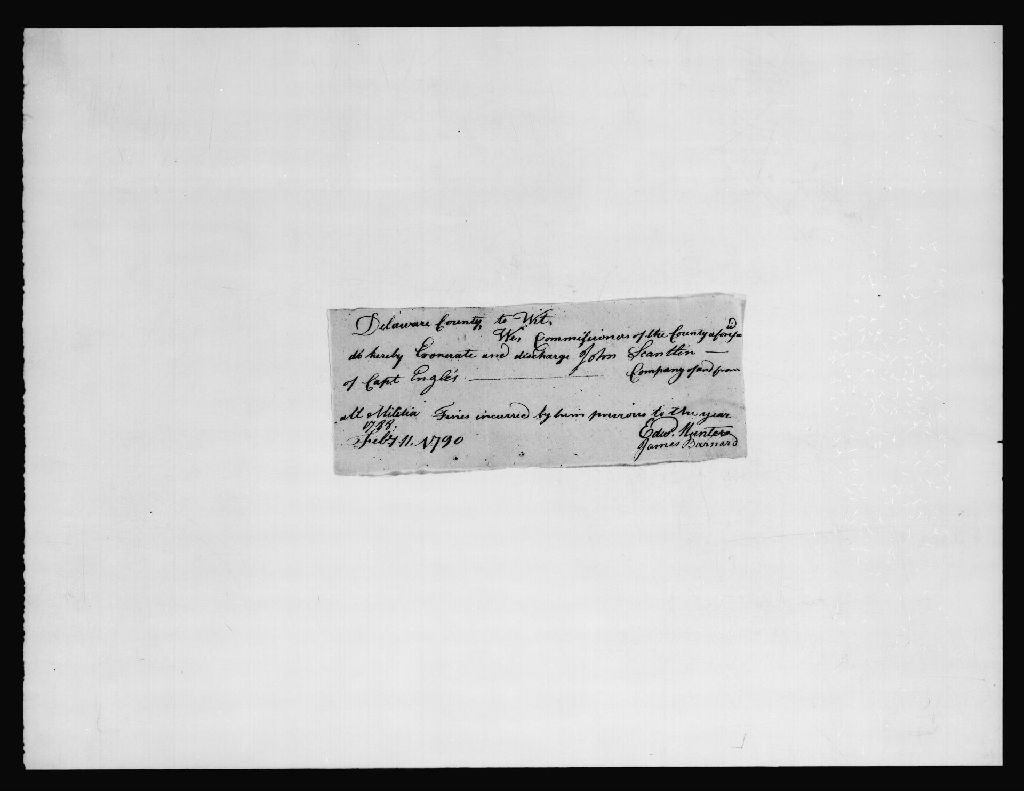 Delaware County, to Wit,
We, Commissioners of the County aforesd
do hereby Exonerate and discharge John Scantlin —
of Capt Engle's ——— Company of and from
all Militia Fines incurred by him previous to the year
1788.
Feby 11 1790
Edwd. Hunter
James Barnard